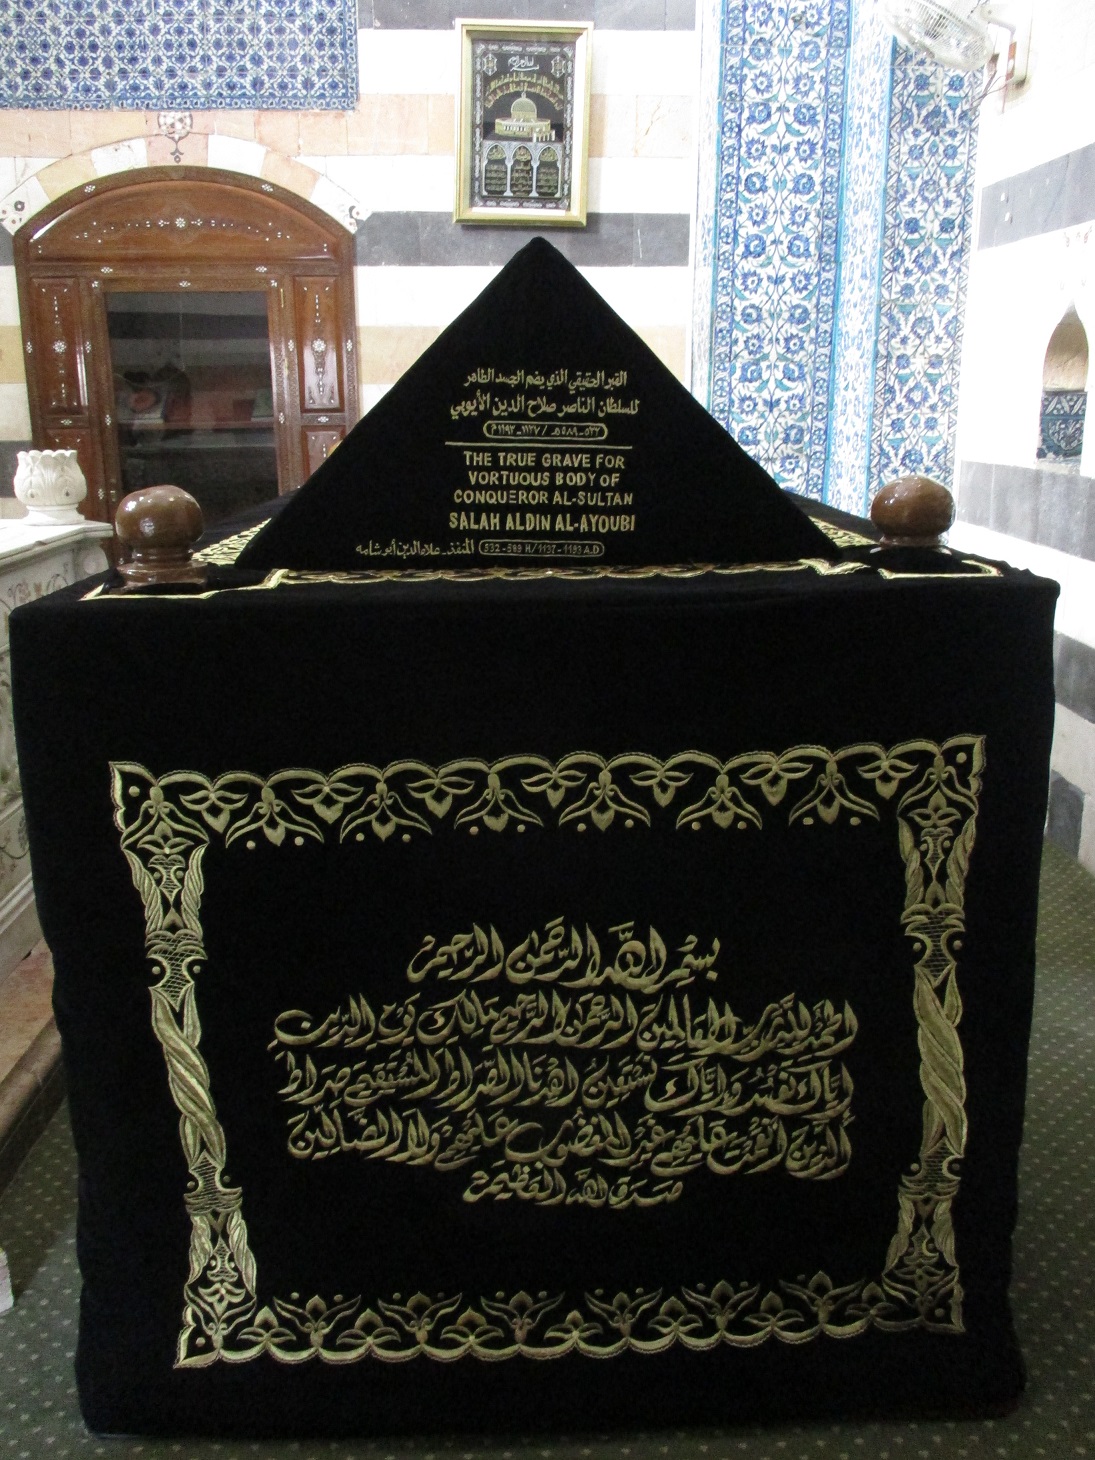 القبر الحقيقي الذي يضم الجسد الطاهر
للسلطان الناصر صلاح الدين الأيوبي
٥٣٢_٥٨٩هـ /١١٣٧_١١٩٣م
THE TRUE GRAVE FOR
VORTUOUS BODY OF
CONQUEROR AL-SULTAN
SALAH ALDIN AL-AYOUBI
532-589 H/1137-1193 A.D
المنفذ_علاء الدين أبو شامه
بِسْمِ اللَّهِ الرَّحْمَنِ الرَّحِيمِ
الحَمْدُ لِلَّهِ رَبِّ العَالَمِينَ الرَّحْمَنِ الرَّحِيمِ مَالِكِ يَوْمِ الدِّينِ
إِيَّاكَ نَعْبُدُ وَإِيَّاكَ نَسْتَعِينُ اهْدِنَا الصِّرَاطَ المُسْتَقِيمَ صِرَاطَ
الَّذِينَ أَنْعَمْتَ عَلَيْهِمْ غَيْرِ المَغْضُوبِ عَلَيْهِمْ وَلَا الضَّالِّينَ
صَدَقَ اللَّهُ العَظِيمُ